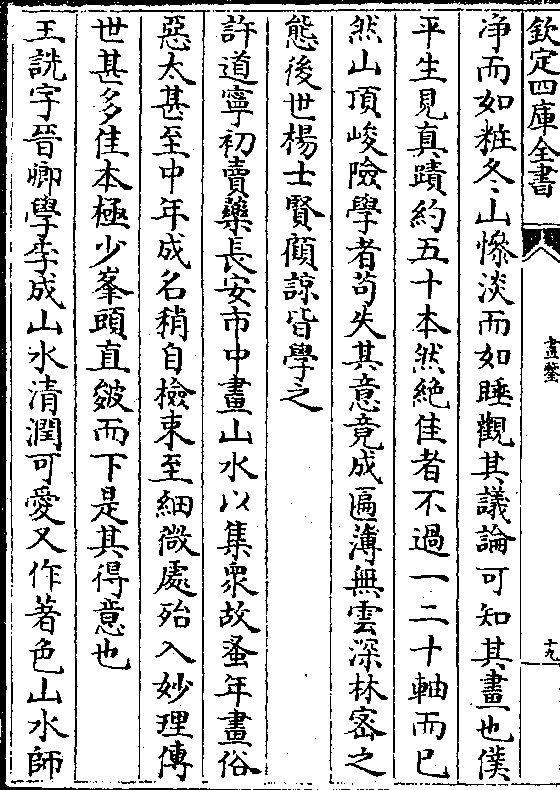 欽定四庫全書
畫鑒
十九
淨而如粧冬山慘淡而如睡觀其議論可知其畫也僕
平生見真蹟約五十本然絶佳者不過一二十軸而已
然山頂峻險學者苟失其意竟成匾薄無雲深林宻之
態後世楊士賢顧諒皆學之
許道寧初賣藥長安市中畫山水以集衆故蚤年畫俗
惡太甚至中年成名稍自檢束至細微處殆入妙理傳
世甚多佳本極少峯頭直皴而下是其得意也
王詵字晉卿學李成山水清潤可愛又作著色山水師